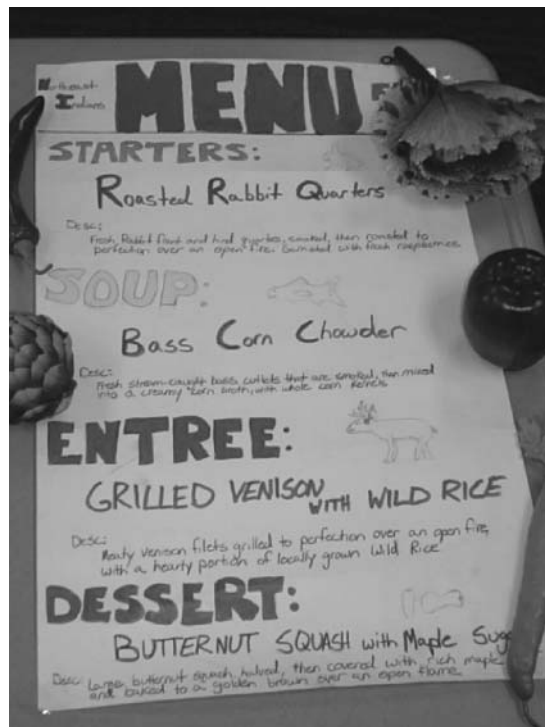 Northeast MENU
Indians
STARTERS:
Roasted Rabbit Quarters
Desc:
Fresh Rabbit front and hind quarters, smoked, then roasted to
perfection over an open fire. Garnished with fresh raspberries
SOUP:
Bass Corn Chowder
Desc:
Fresh stream-caught bass cutlets that are smoked, then mixed
into a creamy corn broth, with whole corn kernels
ENTREE:
GRILLED VENISON WITH WILD RICE
Desc:
Meaty venison filets grilled to perfection over an open fire,
with a hearty portion of locally grown Wild Rice
DESSERT:
BUTTERNUT SQUASH with Maple Sug
Desc: Large butternut squash halved, then covered with rich maple
and baked to a golden brown over an open flame